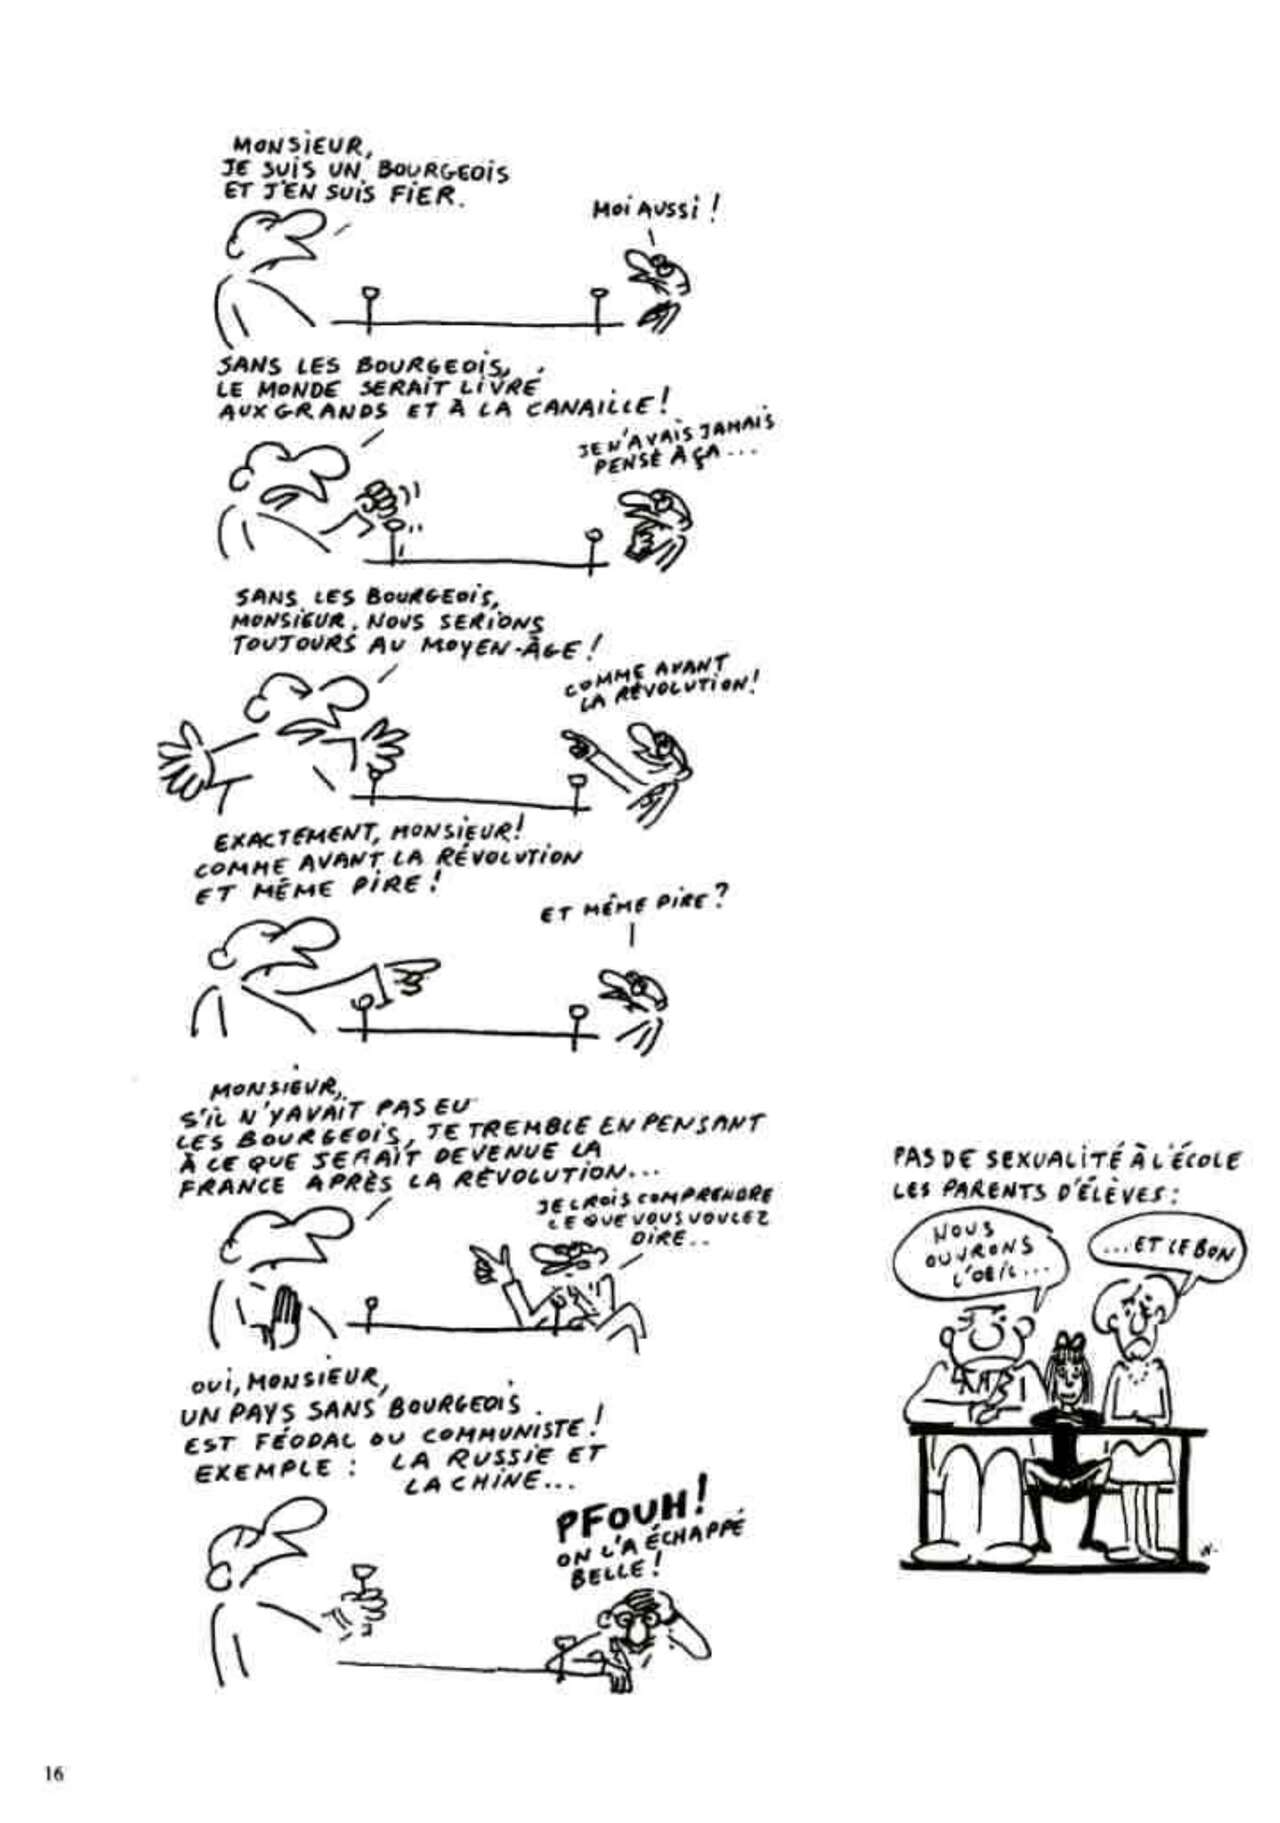 MONSIEUR,
JE SUIS UN BOURGEOIS
ET J'EN SUIS FIER.
MOI AUSSI !
SANS LES BOURGEOIS,
LE MONDE SERAIT LIVRÉ
AUX GRANDS ET À LA CANAILLE !
JE N'AVAIS JAMAIS
PENSÉ À ÇA...
SANS LES BOURGEOIS,
MONSIEUR, NOUS SERIONS
TOUJOURS AU MOYEN-ÂGE !
COMME AVANT
LA RÉVOLUTION !
EXACTEMENT, MONSIEUR !
COMME AVANT LA RÉVOLUTION
ET MÊME PIRE !
ET MÊME PIRE ?
MONSIEUR,
S'IL N'Y AVAIT PAS EU
LES BOURGEOIS, JE TREMBLE EN PENSANT
À CE QUE SERAIT DEVENUE LA
FRANCE APRÈS LA RÉVOLUTION...
JE CROIS COMPRENDRE
CE QUE VOUS VOULEZ
DIRE..
OUI, MONSIEUR,
UN PAYS SANS BOURGEOIS
EST FÉODAL OU COMMUNISTE !
EXEMPLE : LA RUSSIE ET
LA CHINE...
PFOUH !
ON L'A ÉCHAPPÉ
BELLE !
PAS DE SEXUALITÉ À L'ÉCOLE
LES PARENTS D'ÉLÈVES :
NOUS
OUVRONS
L'OEIL...
...ET LE BON
W.
16